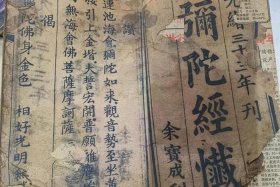 光緒三十三年刊
彌陀經懺
余寶成
讚
蓮池海會彌陀如來觀音勢至坐蓮
接引上金堦大誓宏開普願離塵
無海會佛菩薩摩訶薩
偈
陀佛身金色 相好光明無